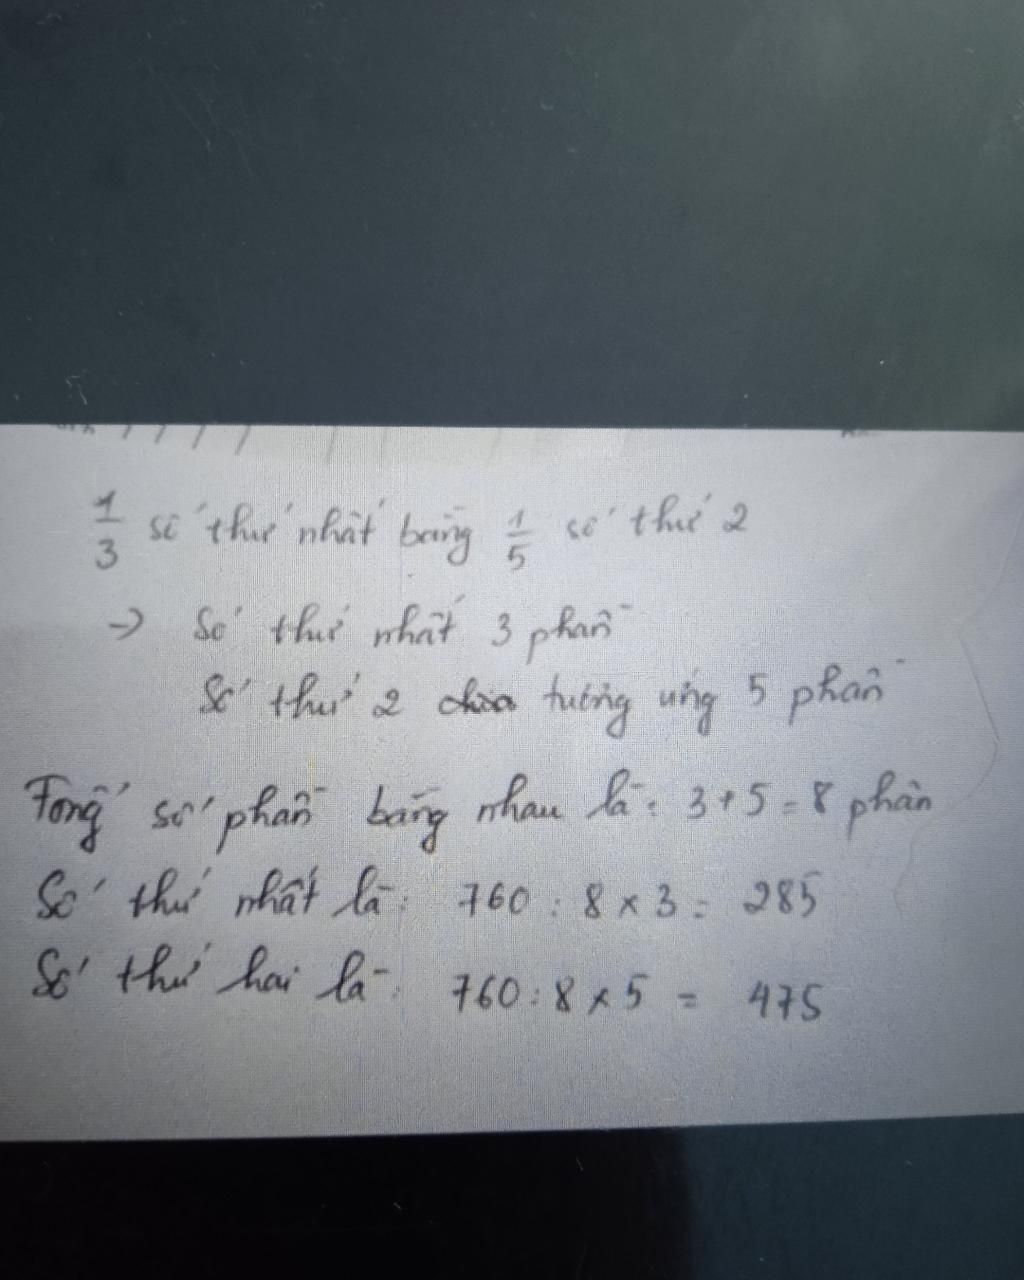 1/3 số thứ nhất bằng 1/5 số thứ 2
→ Số thứ nhất 3 phần
Số thứ 2 tương ứng 5 phần
Tổng số phần bằng nhau là: 3 + 5 = 8 phần
Số thứ nhất là: 760 : 8 x 3 = 285
Số thứ hai là: 760 : 8 x 5 = 475